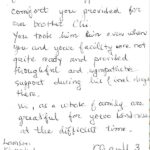 comfort you provided for
our brother Chi
You took him him even when
you and your facility were not
quite ready and provided
thoughtful and sympathetic
support during his final days
there.
We, as a whole family are
greatful for your kindness
at the difficult time.
London